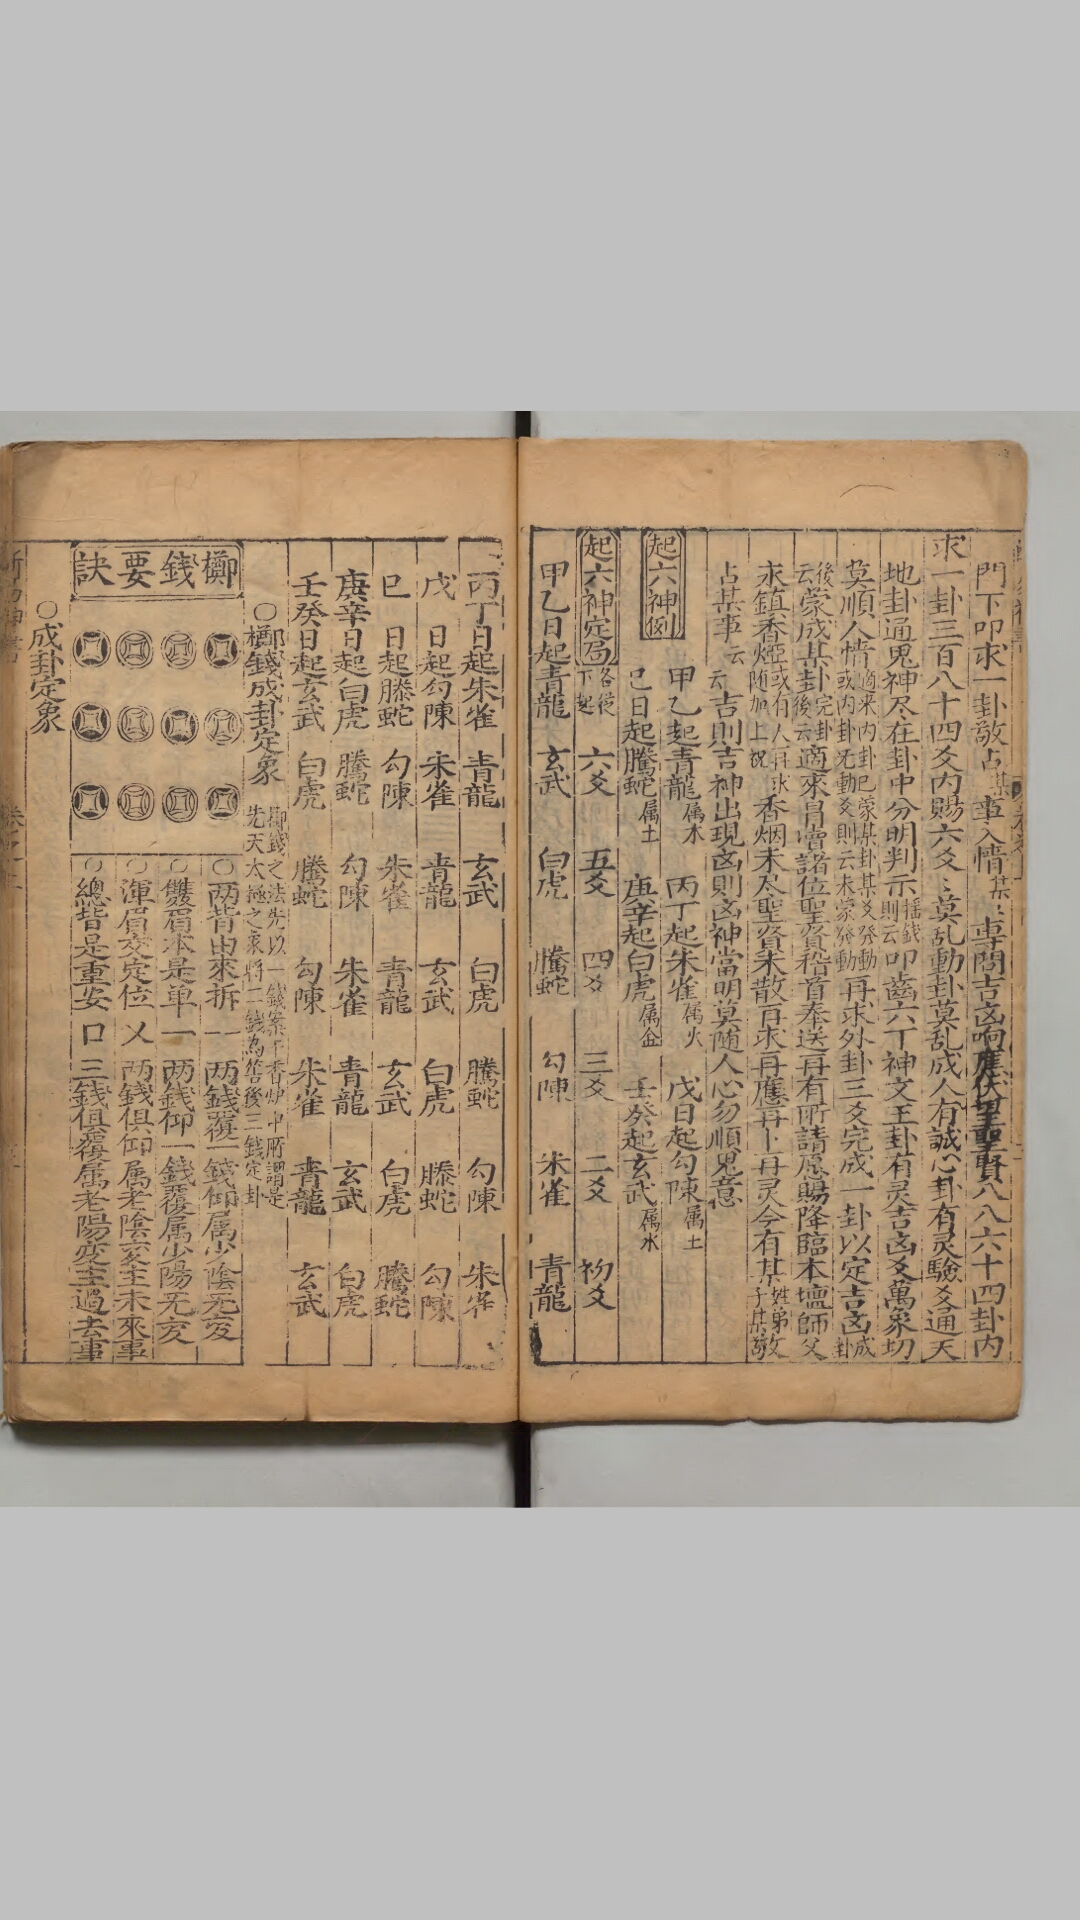 門下叩求一卦敬占某事入情某ミ專問吉凶响應伏望聖賢八八六十四卦内
求一卦三百八十四爻内賜六爻ミ莫乱動卦莫乱成人有誠心卦有灵驗爻通天
地卦通鬼神尽在卦中分明判示揺錢則云叩齒六丁神文王卦有灵吉凶爻萬象切
莫順人情適来内卦已蒙某卦某爻發動或内卦无動爻則云未蒙發動再求外卦三爻完成一卦以定吉凶成卦
後云蒙成某卦完卦後云適來冐凟諸位聖賢稽首奉送再有所請愿賜降臨本壇師父
求鎮香烟或有人再求随加上祝香烟未尽聖賢未散再求再應再卜再灵今有某姓弟子某敬
占某事云云吉則吉神出現凶則凶神當明莫随人心勿順鬼意
起六神例
甲乙起青龍属木 丙丁起朱雀属火 戊日起勾陳属土
己日起騰蛇属土 庚辛起白虎属金 壬癸起玄武属水
起六神定局各從下起 六爻 五爻 四爻 三爻 二爻 初爻
甲乙日起青龍 玄武 白虎 騰蛇 勾陳 朱雀 青龍
丙丁日起朱雀 青龍 玄武 白虎 騰蛇 勾陳 朱雀
戊 日起勾陳 朱雀 青龍 玄武 白虎 騰蛇 勾陳
巳 日起騰蛇 勾陳 朱雀 青龍 玄武 白虎 騰蛇
庚辛日起白虎 騰蛇 勾陳 朱雀 青龍 玄武 白虎
壬癸日起玄武 白虎 騰蛇 勾陳 朱雀 青龍 玄武
○擲錢成卦定象 擲錢之法先以一錢案于香炉中所謂是先天太極之象將二錢為筶後三錢定卦
擲錢要訣
○两背由來拆 一一 两錢覆一錢仰属少陰无変
○雙眉本是单 一 两錢仰一錢覆属少陽无変
○渾眉交定位 乂 两錢俱仰属老陰変主未來事
○總皆是重安 口 三錢俱覆属老陽変主過去事
○成卦定象